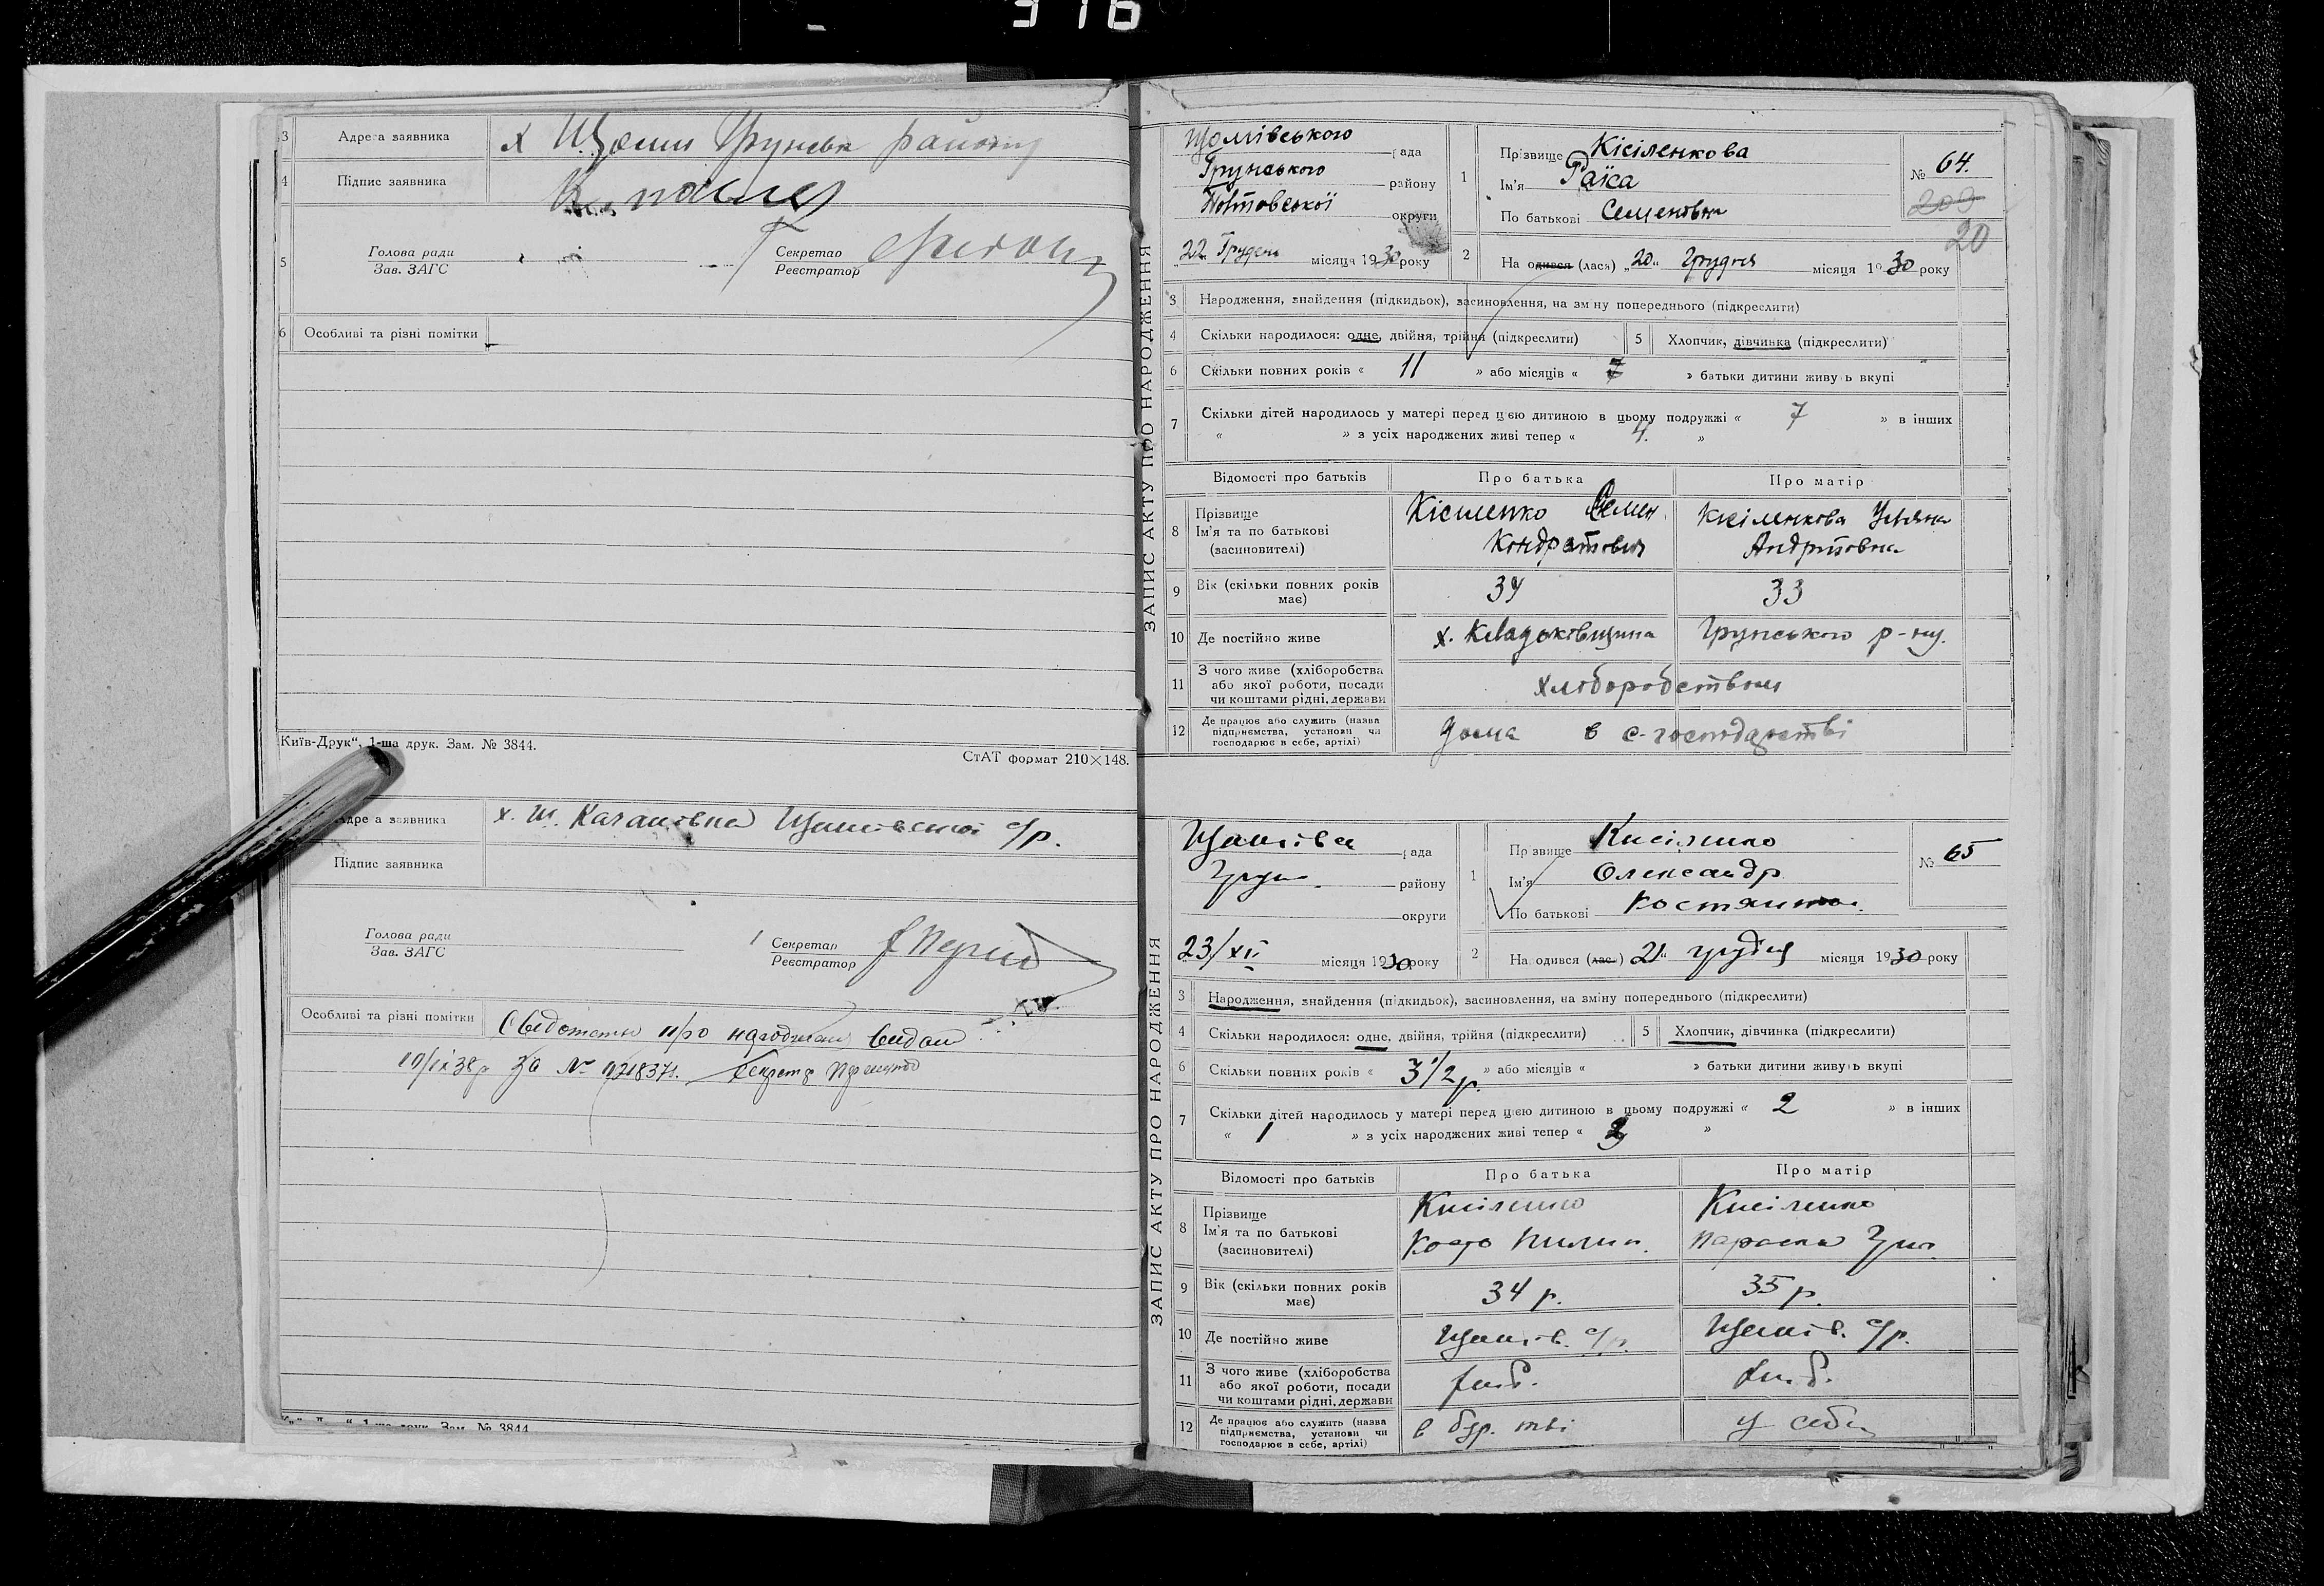 316
3 Адреса заявника х Щоми Грунськ району
4 Підпис заявника
5 Голова ради
Зав. ЗАГС
Секретар
Реєстратор
6 Особливі та різні помітки
Київ-Друк“, 1-ша друк. Зам. № 3844.
СтАТ формат 210×148.
Адреса заявника х. Щомівської с/р.
Підпис заявника
Голова ради
Зав. ЗАГС
Секретар
Реєстратор
Особливі та різні помітки Свідотство про народження видан
за №
1-ша друк. Зам. № 3844
ЗАПИС АКТУ ПРО НАРОДЖЕННЯ
Щомівського рада
Грунського району
Полтавської округи
„22“ Грудень місяця 1930 року
1 Прізвище Кісіленкова
Ім'я Раїса
По батькові Семеновна
№ 64.
209
20
2 Народився (лася) „20“ Грудня місяця 1930 року
3 Народження, знайдення (підкидьок), засиновлення, на зміну попереднього (підкреслити)
4 Скільки народилося: одне, двійня, трійня (підкреслити) 5 Хлопчик, дівчинка (підкреслити)
6 Скільки повних років « 11 » або місяців « 7 » батьки дитини живуть вкупі
7 Скільки дітей народилось у матері перед цією дитиною в цьому подружжі « 7 » в інших
« » з усіх народжених живі тепер « 4. »
Відомості про батьків Про батька Про матір
8 Прізвище
Ім'я та по батькові
(засиновителі)
Кісіленко Семен
Кондратович
Кисіленкова Уляна
Андріївна
9 Вік (скільки повних років має) 34 33
10 Де постійно живе х. Грунського р-ну.
11 З чого живе (хліборобства
або якої роботи, посади
чи коштами рідні, держави
хліборобством
12 Де працює або служить (назва
підприємства, установи чи
господарює в себе, артілі)
дома в с-господарстві
ЗАПИС АКТУ ПРО НАРОДЖЕННЯ
Щомівськ рада
Грун району
округи
23/XI місяця 1930 року
1 Прізвище Кисіленко
Ім'я Олександр
По батькові Костянтин.
№ 65
2 Народився (лас ) 21“ грудня місяця 1930 року
3 Народження, знайдення (підкидьок), засиновлення, на зміну попереднього (підкреслити)
4 Скільки народилося: одне, двійня, трійня (підкреслити) 5 Хлопчик, дівчинка (підкреслити)
6 Скільки повних років « 3 1/2 р. » або місяців « » батьки дитини живуть вкупі
7 Скільки дітей народилось у матері перед цією дитиною в цьому подружжі « 2 » в інших
« 1 » з усіх народжених живі тепер « »
Відомості про батьків Про батька Про матір
8 Прізвище
Ім'я та по батькові
(засиновителі)
Кисіленко
Кость Пилип.
Кисіленко
Параска Григ.
9 Вік (скільки повних років має) 34 р. 35 р.
10 Де постійно живе Щомів. с/р. Щомів. с/р.
11 З чого живе (хліборобства
або якої роботи, посади
чи коштами рідні, держави
хліб. хліб.
12 Де працює або служить (назва
підприємства, установи чи
господарює в себе, артілі)
у себе